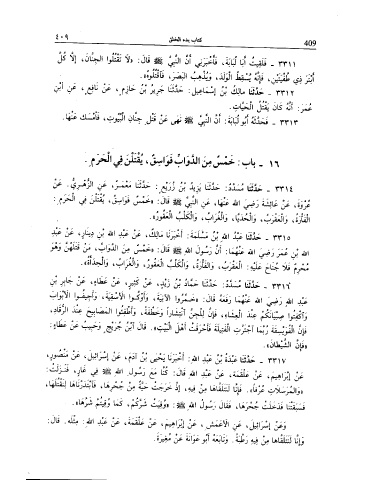 ٤٠٩ كتاب بدء الخلق 409
٣٣١١ - فَلَقِيتُ أَبَا لُبَابَةَ، فَأَخْبَرَنِي أَنَّ النَّبِيَّ ﷺ قَالَ: «لَا تَقْتُلُوا الجِنَّانَ، إِلَّا كُلَّ
أَبْتَرَ ذِي طُفْيَتَيْنِ، فَإِنَّهُ يُسْقِطُ الْوَلَدَ، وَيُذْهِبُ البَصَرَ، فَاقْتُلُوهُ».
٣٣١٢ - حَدَّثَنَا مَالِكُ بْنُ إِسْمَاعِيلَ: حَدَّثَنَا جَرِيرُ بْنُ حَازِمٍ، عَنْ نَافِعٍ، عَنِ ابْنِ
عُمَرَ: أَنَّهُ كَانَ يَقْتُلُ الْحَيَّاتِ.
٣٣١٣ - فَحَدَّثَهُ أَبُو لُبَابَةَ: أَنَّ النَّبِيَّ ﷺ نَهَى عَنْ قَتْلِ جِنَّانِ الْبُيُوتِ، فَأَمْسَكَ عَنْهَا.
١٦ - باب: خَمْسٌ مِنَ الدَّوَابِّ فَوَاسِقُ، يُقْتَلْنَ فِي الْحَرَمِ
٣٣١٤ - حَدَّثَنَا مُسَدَّدٌ: حَدَّثَنَا يَزِيدُ بْنُ زُرَيْعٍ: حَدَّثَنَا مَعْمَرٌ، عَنِ الزُّهْرِيِّ، عَنْ
عُرْوَةَ، عَنْ عَائِشَةَ رَضِيَ اللهُ عَنْهَا، عَنِ النَّبِيِّ ﷺ قَالَ: «خَمْسٌ فَوَاسِقُ، يُقْتَلْنَ فِي الْحَرَمِ:
الْفَأْرَةُ، وَالْعَقْرَبُ، وَالْحُدَيَّا، وَالْغُرَابُ، وَالْكَلْبُ الْعَقُورُ».
٣٣١٥ - حَدَّثَنَا عَبْدُ اللهِ بْنُ مَسْلَمَةَ: أَخْبَرَنَا مَالِكٌ، عَنْ عَبْدِ اللهِ بْنِ دِينَارٍ، عَنْ عَبْدِ
اللهِ بْنِ عُمَرَ رَضِيَ اللهُ عَنْهُمَا: أَنَّ رَسُولَ اللهِ ﷺ قَالَ: «خَمْسٌ مِنَ الدَّوَابِّ، مَنْ قَتَلَهُنَّ وَهُوَ
مُحْرِمٌ فَلَا جُنَاحَ عَلَيْهِ: الْعَقْرَبُ، وَالْفَأْرَةُ، وَالْكَلْبُ الْعَقُورُ، وَالْغُرَابُ، وَالْحِدَأَةُ».
٣٣١٦ - حَدَّثَنَا مُسَدَّدٌ: حَدَّثَنَا حَمَّادُ بْنُ زَيْدٍ، عَنْ كَثِيرٍ، عَنْ عَطَاءٍ، عَنْ جَابِرِ بْنِ
عَبْدِ اللهِ رَضِيَ اللهُ عَنْهُمَا رَفَعَهُ قَالَ: «خَمِّرُوا الآنِيَةَ، وَأَوْكُوا الأَسْقِيَةَ، وَأَجِيفُوا الأَبْوَابَ
وَاكْفِتُوا صِبْيَانَكُمْ عِنْدَ الْعِشَاءِ، فَإِنَّ لِلْجِنِّ انْتِشَارًا وَخَطْفَةً، وَأَطْفِئُوا الْمَصَابِيحَ عِنْدَ الرُّقَادِ،
فَإِنَّ الْفُوَيْسِقَةَ رُبَّمَا اجْتَرَّتِ الْفَتِيلَةَ فَأَحْرَقَتْ أَهْلَ الْبَيْتِ». قَالَ ابْنُ جُرَيْجٍ وَحَبِيبٌ عَنْ عَطَاءٍ:
«فَإِنَّ الشَّيْطَانَ».
٣٣١٧ - حَدَّثَنَا عَبْدَةُ بْنُ عَبْدِ اللهِ: أَخْبَرَنَا يَحْيَى بْنُ آدَمَ، عَنْ إِسْرَائِيلَ، عَنْ مَنْصُورٍ،
عَنْ إِبْرَاهِيمَ، عَنْ عَلْقَمَةَ، عَنْ عَبْدِ اللهِ قَالَ: كُنَّا مَعَ رَسُولِ اللهِ ﷺ فِي غَارٍ، فَنَزَلَتْ:
﴿وَالْمُرْسَلَاتِ عُرْفًا﴾. فَإِنَّا لَنَتَلَقَّاهَا مِنْ فِيهِ، إِذْ خَرَجَتْ حَيَّةٌ مِنْ جُحْرِهَا، فَابْتَدَرْنَاهَا لِنَقْتُلَهَا،
فَسَبَقَتْنَا فَدَخَلَتْ جُحْرَهَا، فَقَالَ رَسُولُ اللهِ ﷺ: «وُقِيَتْ شَرَّكُمْ، كَمَا وُقِيتُمْ شَرَّهَا».
وَعَنْ إِسْرَائِيلَ، عَنِ الأَعْمَشِ، عَنْ إِبْرَاهِيمَ، عَنْ عَلْقَمَةَ، عَنْ عَبْدِ اللهِ: مِثْلَهُ. قَالَ:
وَإِنَّا لَنَتَلَقَّاهَا مِنْ فِيهِ رَطْبَةً. وَتَابَعَهُ أَبُو عَوَانَةَ عَنْ مُغِيرَةَ.